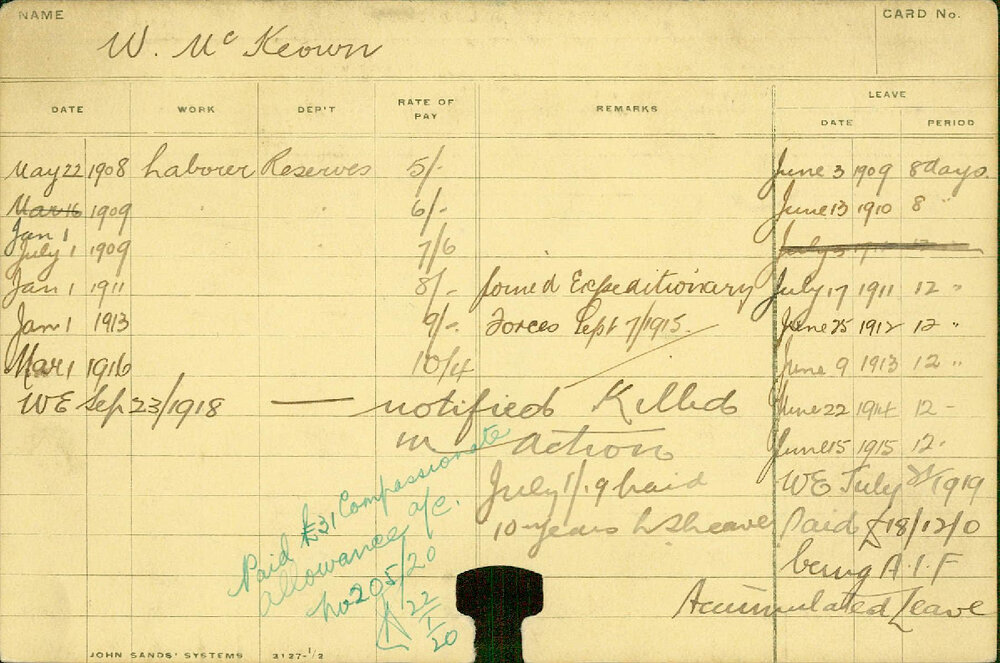 NAME
CARD No.
W. McKeown
DATE WORK DEP'T RATE OF PAY REMARKS LEAVE
DATE PERIOD
May 22 1908 Laborer Reserves 5/- June 3 1909 8 days.
Mar 16 1909 6/- June 13 1910 8 "
Jan 1
July 1 1909 7/6 July
Jan 1 1911 8/- Joined Expeditionary July 17 1911 12 "
Jan 1 1913 9/- Forces Sept 7/1915. June 25 1912 12 "
Mar 1 1916 10/4 June 9 1913 12 "
WE Sep 23/1918 — notified Killed June 22 1914 12 -
in action June 15 1915 12 "
July 1/19 paid WE July 1919
10 years Paid £18/12/0
being A.I.F
Accumulated Leave
Paid £31 Compassionate
Allowance a/c.
No 205/20
22/1/20
JOHN SANDS' SYSTEMS 3127-1/2